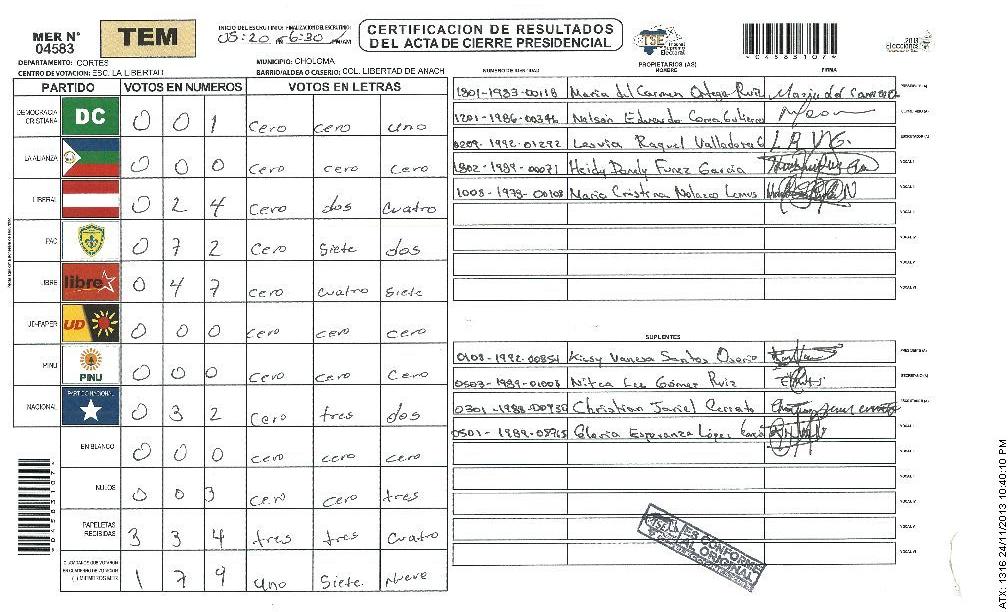 MER N° 04583
TEM
INICIO DEL ESCRUTINIO: FINALIZACION DEL ESCRUTINIO:
05:20 6:30 /
CERTIFICACION DE RESULTADOS
DEL ACTA DE CIERRE PRESIDENCIAL
TSE Tribunal Supremo Electoral
2013
Elecciones
0 4 5 8 3 1 0 7
DEPARTAMENTO: CORTES
MUNICIPIO: CHOLOMA
CENTRO DE VOTACION: ESC. LA LIBERTAD
BARRIO/ALDEA O CASERIO: COL. LIBERTAD DE ANACH
PARTIDO VOTOS EN NUMEROS VOTOS EN LETRAS
DEMOCRACIA CRISTIANA DC 0 0 1 Cero cero uno
LA ALIANZA 0 0 0 Cero cero cero
LIBERAL 0 2 4 Cero dos cuatro
PAC 0 7 2 Cero siete dos
LIBRE libre 0 4 7 Cero cuatro siete
UD-FAPER UD 0 0 0 Cero cero cero
PINU PINU 0 0 0 Cero cero cero
NACIONAL PARTIDO NACIONAL 0 3 2 Cero tres dos
EN BLANCO 0 0 0 Cero cero cero
NULOS 0 0 3 Cero cero tres
PAPELETAS RECIBIDAS 3 3 4 tres tres cuatro
CIUDADANOS QUE VOTARON 1 7 9 uno siete nueve
PROPIETARIOS (AS)
NUMERO DE IDENTIDAD NOMBRE FIRMA
1801-1983-00118 Maria del Carmen Ortega Ruiz Maria del Carmen PRESIDENTE (A)
1201-1986-00346 Nelson Eduardo
0209-1992-01292 Lesvia Raquel Valladares L.R.V.G. ESCRUTADOR (A)
1802-1989-00071 Heidy Danely Funez Garcia VOCAL I
1008-1979-00108 Maria Cristina Nolasco Lemus VOCAL II
SUPLENTES
0108-1992-00854 Kissy Vanesa Santos Osorio PRESIDENTE (A)
0503-1989-01008 Nitca Lee Gómez Ruiz SECRETARIO (A)
0301-1988-00930 Christian Jariel Cerrato ESCRUTADOR (A)
0501-1989-08965 Gloria Esperanza López VOCAL I
TSE ES CONFORME
AL ORIGINAL
ATX: 1316 24/11/2013 10:40:10 PM